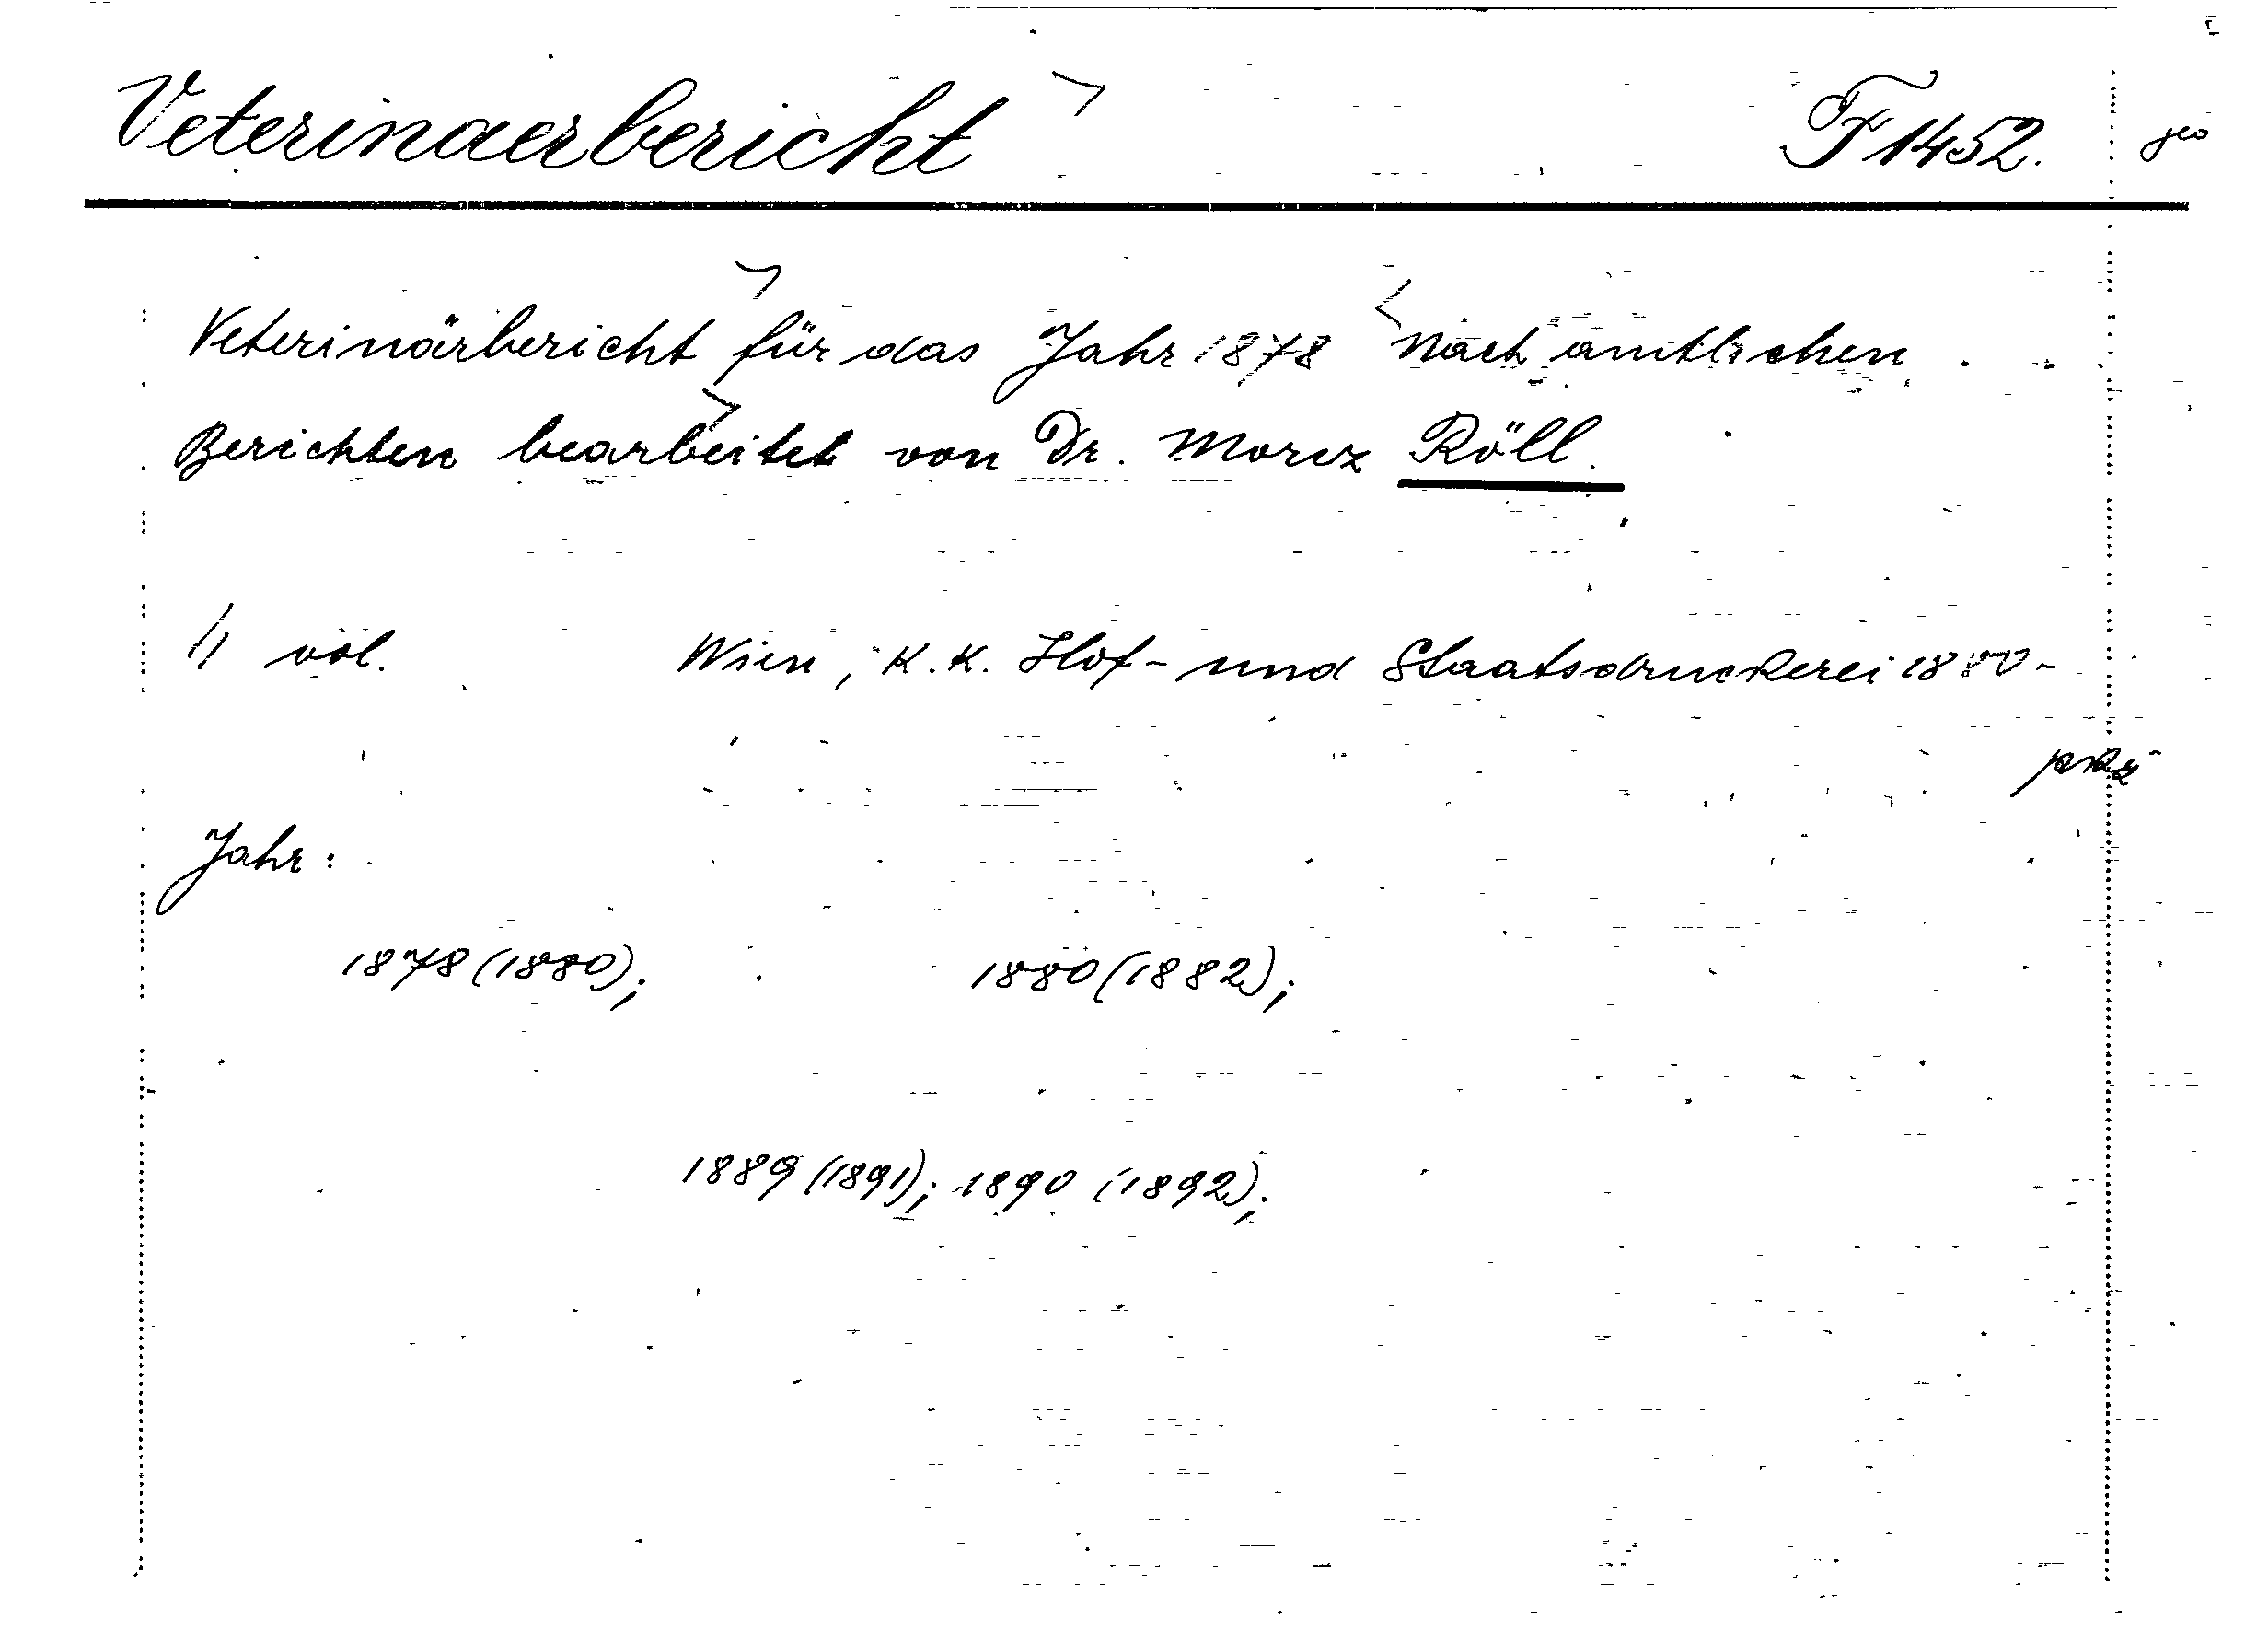 Veterinaerbericht F 1452.
Veterinärbericht für das Jahr 1878 nach amtlichen
Berichten bearbeitet von Dr. Moriz Röll.
vol. Wien, K. K. Hof- und Staatsdruckerei 1880-
Jahr:
1878 (1880); 1880 (1882);
1889 (1891); 1890 (1892);